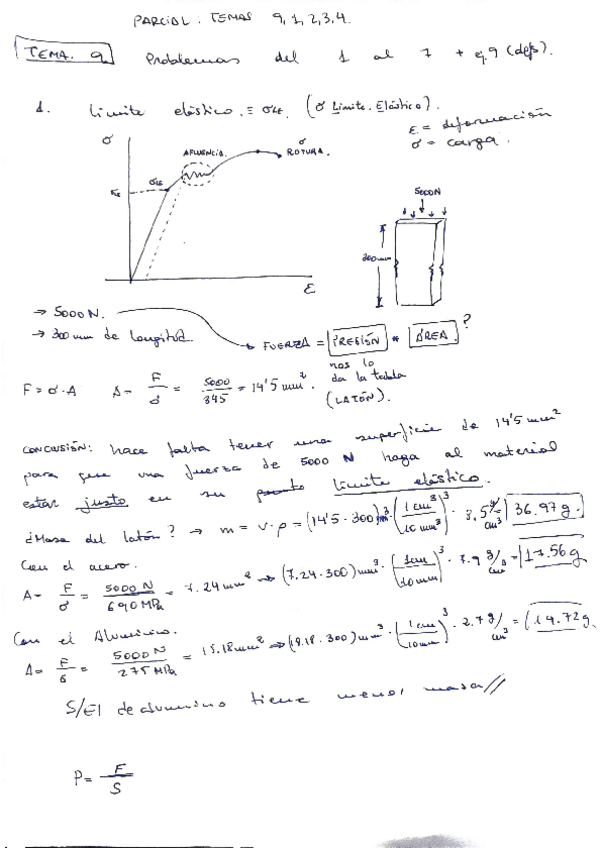 PARCIAL: TEMAS 9, 1, 2, 3, 4.
TEMA. 9 Problemas del 1 al 7 + ej. 9 (defs).
1. Límite elástico ≡ σLE. (σ Límite. Elástico).
ε = deformación
σ = carga.
σ
AFLUENCIA.
σ ROTURA.
σLE
ε
5000N
300mm
→ 5000 N.
→ 300 mm de longitud.
FUERZA = PRESIÓN * ÁREA ?
nos lo da la tabla (LATÓN).
F = σ·A A = F/σ = 5000/345 = 14'5 mm².
CONCLUSIÓN: hace falta tener una superficie de 14'5 mm²
para que una fuerza de 5000 N haga al material
estar justo en su límite elástico.
¿Masa del latón? → m = v·ρ = (14'5·300) mm³ (1 cm/10 mm)³ · 8.5 g/cm³ = 36.97 g.
Con el acero.
A = F/σ = 5000 N/690 MPa = 7.24 mm² ⇒ (7.24·300) mm³ · (1cm/10mm)³ · 7.9 g/cm³ = 17.56 g
Con el Aluminio.
A = F/σ = 5000 N/275 MPa = 18.18 mm² ⇒ (18.18·300) mm³ · (1cm/10mm)³ · 2.7 g/cm³ = 14.72 g.
S/El de aluminio tiene menor masa//
P = F/S